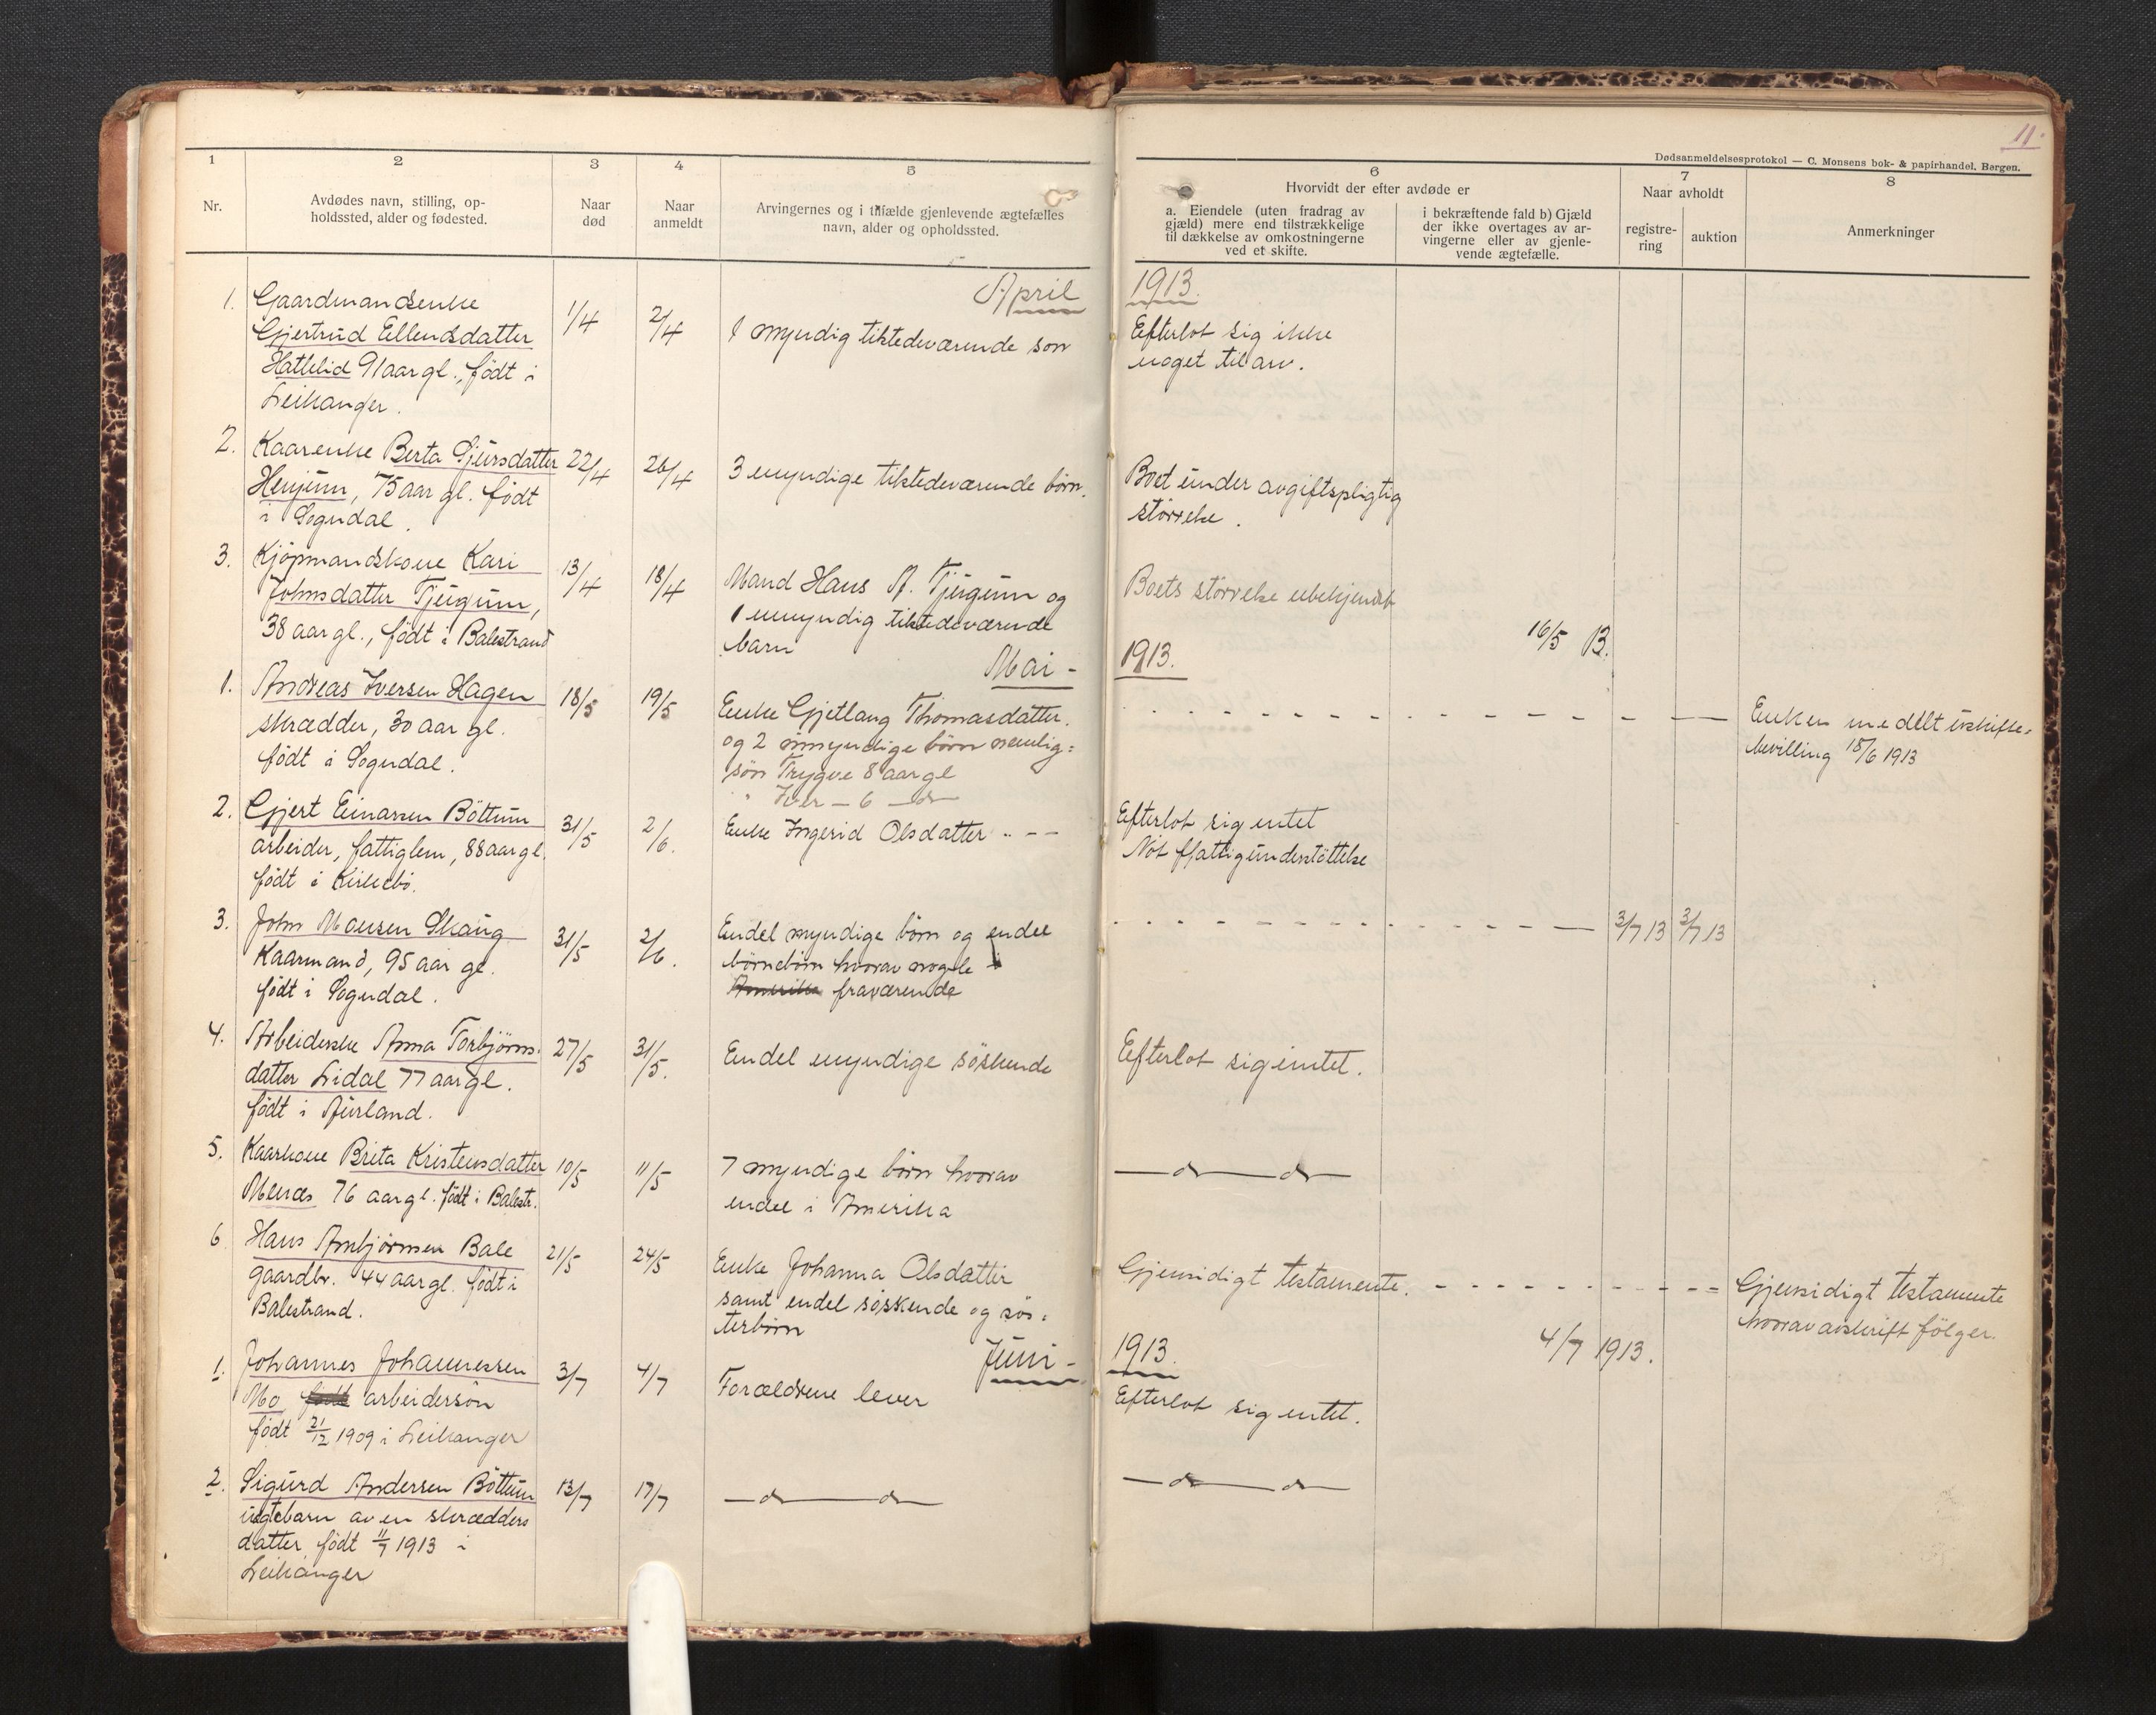 11.
Dødsanmeldelsesprotokol — C. Monsens bok- & papirhandel. Bergen.
1 2 3 4 5 6 7 8
Nr.
Avdødes navn, stilling, op-
holdssted, alder og fødested.
Naar
død
Naar
anmeldt
Arvingernes og i tilfælde gjenlevende ægtefælles
navn, alder og opholdssted.
Hvorvidt der efter avdøde er
a. Eiendele (uten fradrag av
gjæld) mere end tilstrækkelige
til dækkelse av omkostningerne
ved et skifte.
i bekræftende fald b) Gjæld
der ikke overtages av ar-
vingerne eller av gjenle-
vende ægtefælle.
Naar avholdt
registre-
ring
auktion
Anmerkninger
April 1913.
1. Gaardmandsenke
Gjertrud Ellendsdatter
Hatlelid 91 aar gl., født i
Leikanger.
1/4 2/4
1 myndig tilstedeværende søn
Efterlot sig ikke
noget til arv.
2. Kaarenke Berta Sjursdatter
Henjum, 75 aar gl. født
i Sogndal.
22/4 26/4
3 myndige tilstedeværende børn.
Boet under avgiftspligtig
størrelse.
3. Kjøpmandskone Kari
Johnsdatter Tjugum,
38 aar gl., født i Balestrand
13/4 18/4
Mand Hans A. Tjugum og
1 umyndig tilstedeværende
barn
Boets størrelse ubekjendt
16/5 13.
Mai - 1913.
1. Andreas Iversen Hagen
skrædder, 30 aar gl.
født i Sogndal.
18/5 19/5
Enke Gjetlaug Thomasdatter.
og 2 umyndige børn nemlig:
søn Trygve 8 aar gl
" Iver — 6 — do —
Enken meddelt uskifte-
bevilling 18/6 1913
2. Gjert Einarsen Bøttum
arbeider, fattiglem, 88 aar gl.
født i Kirkebø.
31/5 2/6.
Enke Ingerid Olsdatter
Efterlot sig intet
Nøt fattigunderstøttelse
3. John Monsen Skaug
Kaarmand, 95 aar gl.
født i Sogndal.
31/5 2/6.
Endel myndige børn og endel
børnebørn hvorav nogle i
Amerika fraværende
3/7 13 3/7 13
4. Arbeiderske Anna Torbjørns-
datter Lidal 77 aar gl.
født i Aurland.
27/5 31/5.
Endel myndige søskende
Efterlot sig intet.
5. Kaarkone Brita Kristensdatter
Menæs 76 aar gl. født i Balestr.
10/5 11/5
7 myndige børn hvorav
endel i Amerika
— do — do —
6 Hans Anbjørnsen Bale
gaardbr. 44 aar gl. født i
Balestrand.
21/5 24/5
Enke Johanna Olsdatter
samt endel søskende og søs-
terbørn
Gjensidigt testamente.
Gjensidigt testamente
hvorav avskrift følger.
4/7 1913.
Juni - 1913.
1. Johannes Johannessen
Mo født arbeidersøn
født 21/12 1909 i Leikanger
3/7 4/7
Forældrene lever
Efterlot sig intet.
2. Sigurd Andersen Bøttum
uegtebarn av en skrædders
datter født 11/7 1913 i
Leikanger
13/7 17/7
— do — do —
— do — do —